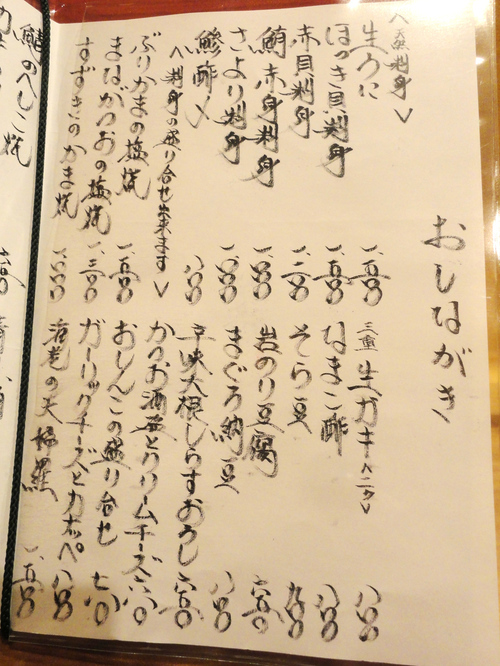 おしながき
〈天然刺身〉
生うに 一、五〇〇
ほっき貝刺身 一、五〇〇
赤貝刺身 一、二〇〇
鮪赤身刺身 一、八〇〇
さより刺身 一、〇〇〇
鯵酢〆 八〇〇
〈刺身の盛り合せ出来ます〉
ぶりかまの塩焼 一、五〇〇
まながつおの塩焼 一、三〇〇
すずきのかま焼 一、〇〇〇
三重生ガキ〈二ケ〉 八〇〇
なまこ酢 八〇〇
そら豆 九〇〇
岩のり豆腐 六五〇
まぐろ納豆 八〇〇
辛味大根しらすおろし 六五〇
かつお酒盗とクリームチーズ 六八〇
おしんこの盛り合せ 七八〇
ガーリックチーズとカナッペ 八〇〇
若竹の天婦羅 一、五〇〇
鯖のへしこ焼